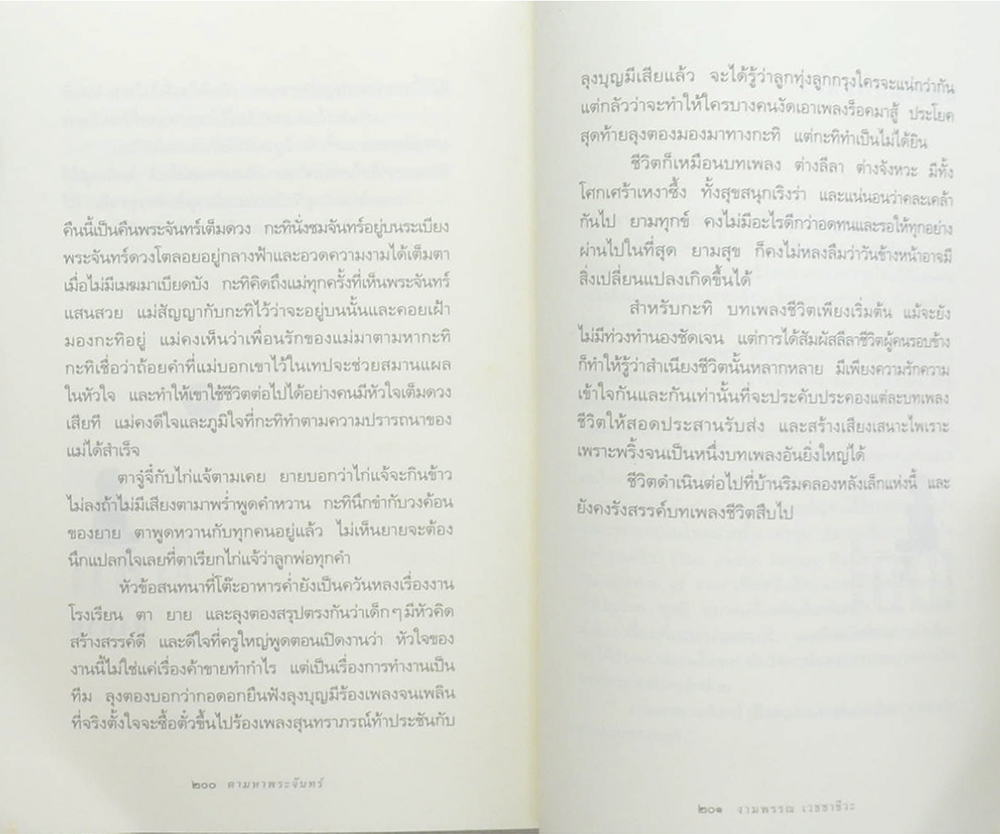 คืนนี้เป็นคืนพระจันทร์เต็มดวง กะทินั่งชมจันทร์อยู่บนระเบียง
พระจันทร์ดวงโตลอยอยู่กลางฟ้าและอวดความงามได้เต็มตา
เมื่อไม่มีเมฆมาเบียดบัง กะทิคิดถึงแม่ทุกครั้งที่เห็นพระจันทร์
แสนสวย แม่สัญญากับกะทิไว้ว่าจะอยู่บนนั้นและคอยเฝ้า
มองกะทิอยู่ แม่คงเห็นว่าเพื่อนรักของแม่มาตามหากะทิ
กะทิเชื่อว่าถ้อยคำที่แม่บอกเขาไว้ในเทปจะช่วยสมานแผล
ในหัวใจ และทำให้เขาใช้ชีวิตต่อไปได้อย่างคนมีหัวใจเต็มดวง
เสียที แม่คงดีใจและภูมิใจที่กะทิทำตามความปรารถนาของ
แม่ได้สำเร็จ
ตาจู๋จี๋กับไก่แจ้ตามเคย ยายบอกว่าไก่แจ้จะกินข้าว
ไม่ลงถ้าไม่มีเสียงตามาพร่ำพูดคำหวาน กะทินึกขำกับวงค้อน
ของยาย ตาพูดหวานกับทุกคนอยู่แล้ว ไม่เห็นยายจะต้อง
นึกแปลกใจเลยที่ตาเรียกไก่แจ้ว่าลูกพ่อทุกคำ
หัวข้อสนทนาที่โต๊ะอาหารค่ำยังเป็นควันหลงเรื่องงาน
โรงเรียน ตา ยาย และลุงตองสรุปตรงกันว่าเด็กๆมีหัวคิด
สร้างสรรค์ดี และดีใจที่ครูใหญ่พูดตอนเปิดงานว่า หัวใจของ
งานนี้ไม่ใช่แค่เรื่องค้าขายทำกำไร แต่เป็นเรื่องการทำงานเป็น
ทีม ลุงตองบอกว่ากอดอกยืนฟังลุงบุญมีร้องเพลงจนเพลิน
ที่จริงตั้งใจจะซื้อตั๋วขึ้นไปร้องเพลงสุนทราภรณ์ท้าประชันกับ
๒๐๐ ตามหาพระจันทร์
ลุงบุญมีเสียแล้ว จะได้รู้ว่าลูกทุ่งลูกกรุงใครจะแน่กว่ากัน
แต่กลัวว่าจะทำให้ใครบางคนงัดเอาเพลงร็อคมาสู้ ประโยค
สุดท้ายลุงตองมองมาทางกะทิ แต่กะทิทำเป็นไม่ได้ยิน
ชีวิตก็เหมือนบทเพลง ต่างลีลา ต่างจังหวะ มีทั้ง
โศกเศร้าเหงาซึ้ง ทั้งสุขสนุกเริงร่า และแน่นอนว่าคละเคล้า
กันไป ยามทุกข์ คงไม่มีอะไรดีกว่าอดทนและรอให้ทุกอย่าง
ผ่านไปในที่สุด ยามสุข ก็คงไม่หลงลืมว่าวันข้างหน้าอาจมี
สิ่งเปลี่ยนแปลงเกิดขึ้นได้
สำหรับกะทิ บทเพลงชีวิตเพียงเริ่มต้น แม้จะยัง
ไม่มีท่วงทำนองชัดเจน แต่การได้สัมผัสลีลาชีวิตผู้คนรอบข้าง
ก็ทำให้รู้ว่าสำเนียงชีวิตนั้นหลากหลาย มีเพียงความรักความ
เข้าใจกันและกันเท่านั้นที่จะประคับประคองแต่ละบทเพลง
ชีวิตให้สอดประสานรับส่ง และสร้างเสียงเสนาะไพเราะ
เพราะพริ้งจนเป็นหนึ่งบทเพลงอันยิ่งใหญ่ได้
ชีวิตดำเนินต่อไปที่บ้านริมคลองหลังเล็กแห่งนี้ และ
ยังคงรังสรรค์บทเพลงชีวิตสืบไป
๒๐๑ งามพรรณ เวชชาชีวะ